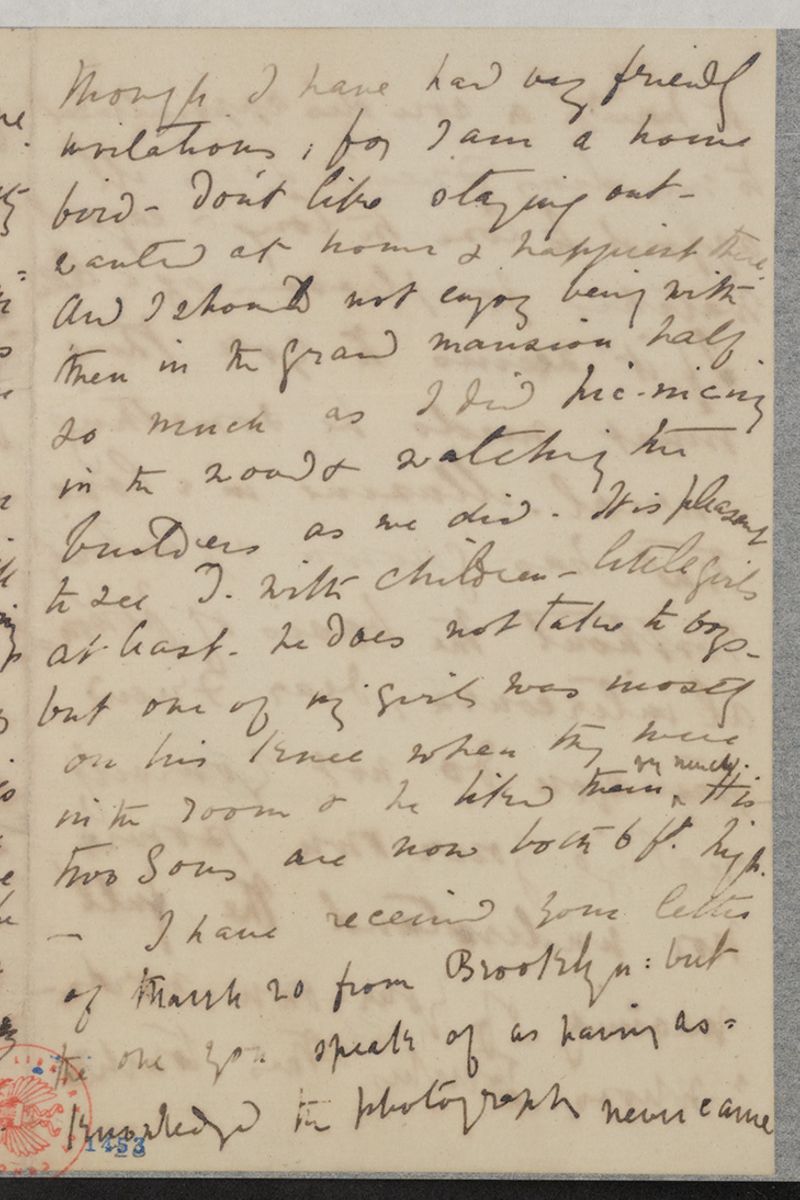 though I have had very friendly
invitations, for I am a home
bird - don't like staying out -
wanted at home & happiest there
And I should not enjoy being with
them in the grand mansion half
so much as I did pic-nicing
in the woods & watching the
builders as we did. It is pleasant
to see T. with children - little girls
at least. he does not take to boys -
but one of my girls was mostly
on his knee when they were
in the room & he liked them very much. His
two Sons are now both 6 ft. high.
— I have received your letter
of March 20 from Brooklyn: but
the one you speak of as having ac=
knowledged the photograph never came
1453